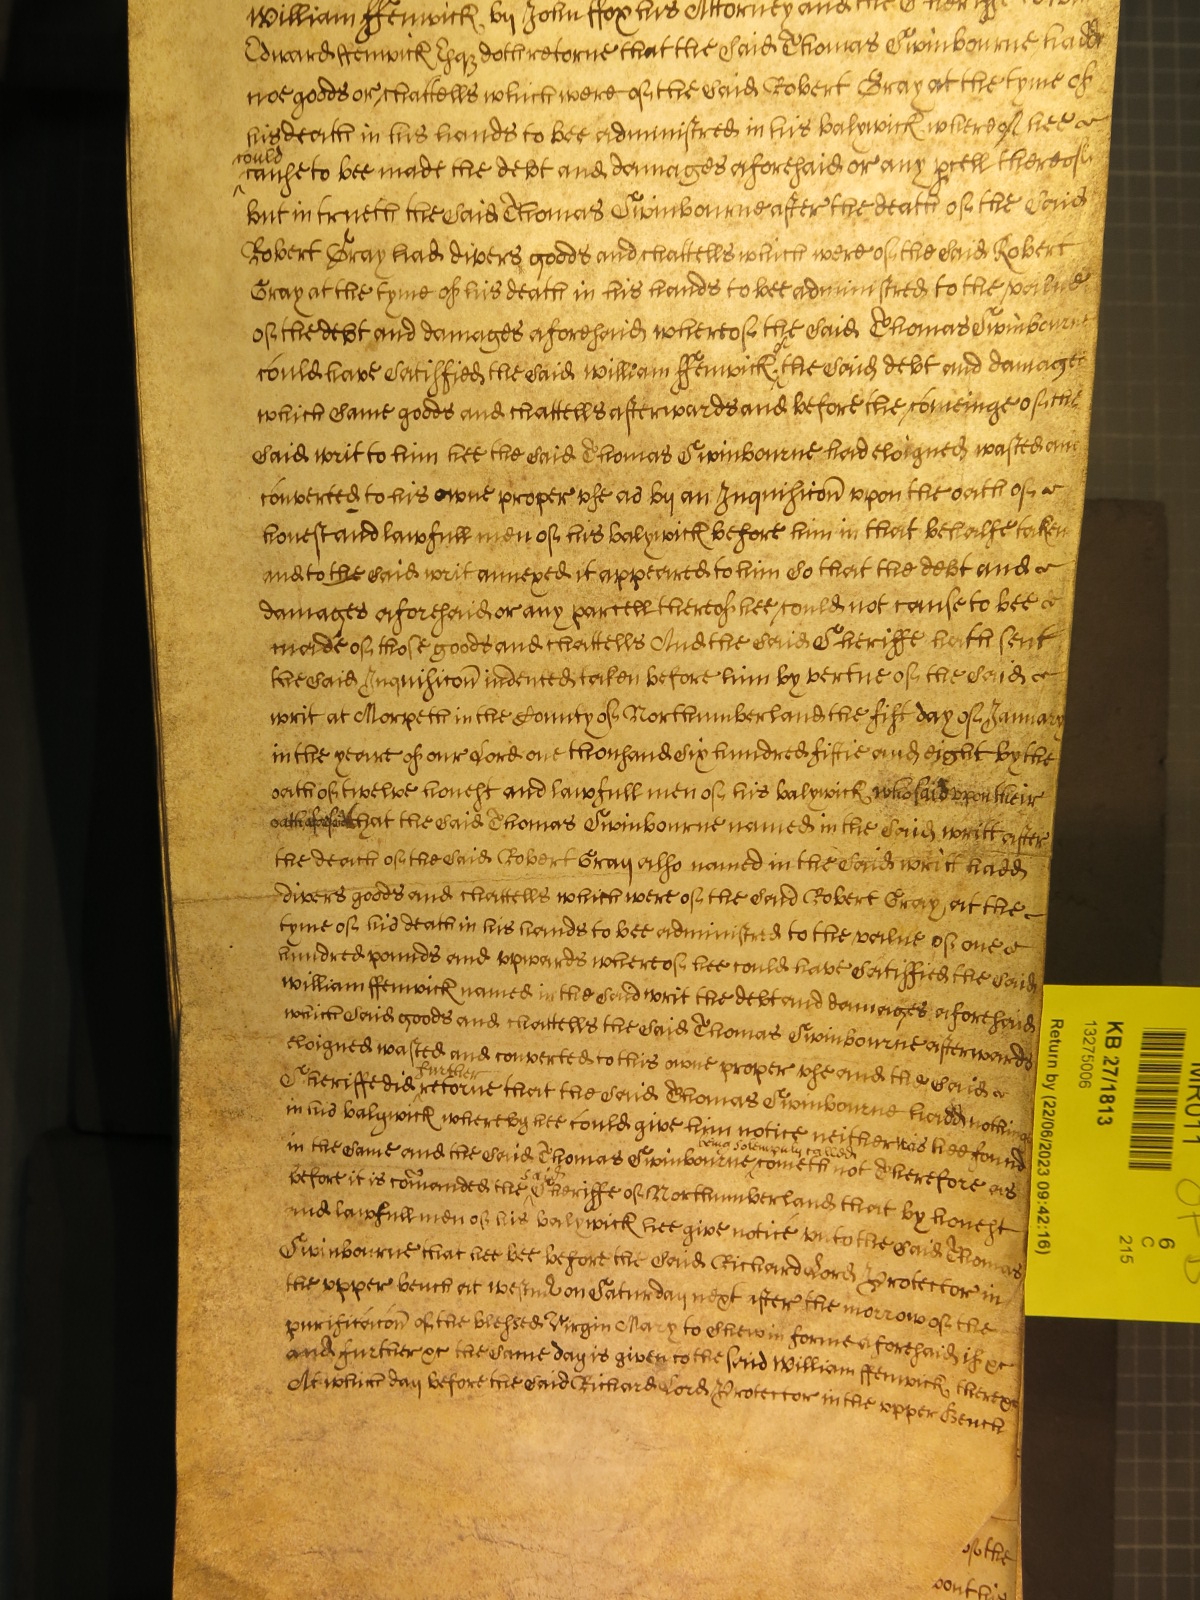 William ffenwick by John ffox his Attorney and the Sheriffe
Edward ffenwick Esqr doth retorne that the said Thomas Swinbourne hadd
noe goods or chattells which were of the said Robert Gray at the tyme of
his death in his hands to bee administred in his balywick whereof hee
could
cause to bee made the debt and damages aforesaid or any pcell thereof
but in trueth the said Thomas Swinbourne after the death of the said
Robert Gray had divers goods and chattells which were of the said Robert
Gray at the tyme of his death in his hands to bee administred to the value
of the debt and damages aforesaid whereof the said Thomas Swinbourne
could have satisfied the said William ffenwick of the said debt and damages
which same goods and chattells afterwards and before the comeinge of the
said writ to him hee the said Thomas Swinbourne had eloigned wasted and
converted to his owne proper use as by an Inquisicon upon the oath of
honest and lawfull men of his balywick before him in that behalfe taken
and to the said writ annexed it appeared to him So that the debt and
damages aforesaid or any parcell thereof hee could not cause to bee
made of those goods and chattells And the said Sheriffe hath sent
the said Inquisicon indented taken before him by vertue of the said
writ at Morpeth in the County of Northumberland the fift day of January
in the yeare of our Lord one thousand six hundred fiftie and eight by the
oath of twelve honest and lawfull men of his balywick who said upon their
oath that the said Thomas Swinbourne named in the said writt after
the death of the said Robert Gray also named in the said writt hadd
divers goods and chattells which were of the said Robert Gray at the
tyme of his death in his hands to bee administred to the value of one
hundred pounds and upwards whereof hee could have satisfied the said
William ffenwick named in the said writ the debt and damages aforesaid
which said goods and chattells the said Thomas Swinbourne afterwards
eloigned wasted and converted to his owne proper use and the said
further
Sheriffe did retorne that the said Thomas Swinbourne hadd nothing
in his balywick whereby hee could give him notice neither was hee found
being solempnly called
in the same and the said Thomas Swinbourne cometh not Therefore as
said
before it is comanded the Sheriffe of Northumberland that by honest
and lawfull men of his balywick hee give notice unto the said Thomas
Swinbourne that hee bee before the said Richard Lord Protector in
the upper bench at westmr on Saturday next after the morrow of the
purificacon of the blessed Virgin Mary to shew in forme aforesaid if xc
and further xc the same day is given to the said William ffenwick there xc
At which day before the said Richard Lord Protector in the upper Bench
of the
KB 27/1813
13275006
Return by (22/06/2023 09:42:16)
6
C
215